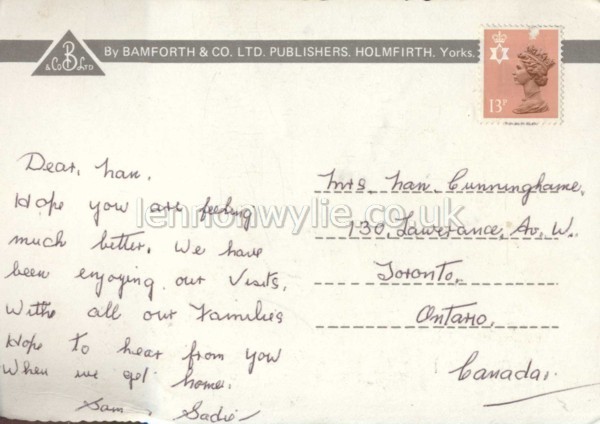 B
& Co LTD
By BAMFORTH & CO. LTD. PUBLISHERS. HOLMFIRTH, Yorks.
13P
Dear, Nan.
Hope you are feeling
much better. We have
been enjoying our Visits,
Withe all our Families
Hope to hear from you
When we get home.
Sam, Sadie
Mrs. Nan. Cunninghame,
130, Lawerance, Av. W.
Toronto,
Ontario,
Canada,
lennonwylie.co.uk